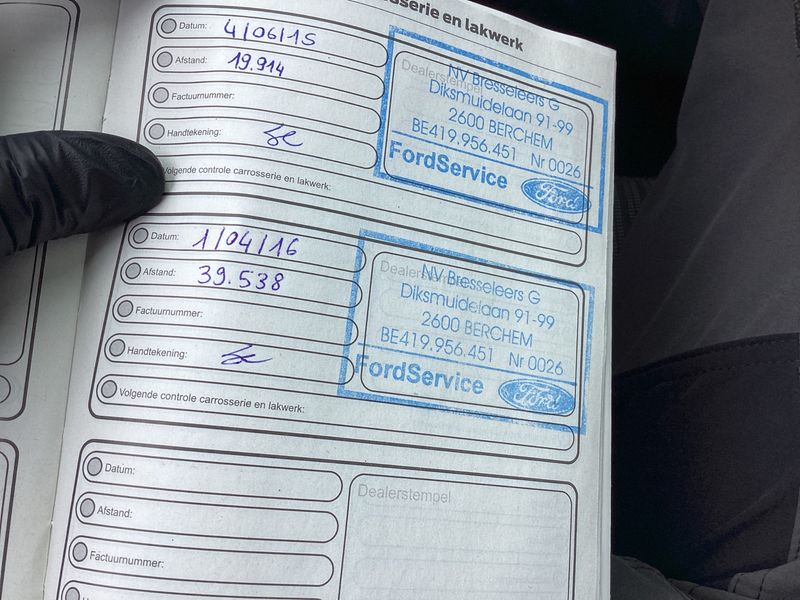 sserie en lakwerk
Datum: 4/06/15
Afstand: 19.914
Factuurnummer:
Handtekening:
Volgende controle carrosserie en lakwerk:
Dealerstempel
NV Bresseleers G
Diksmuidelaan 91-99
2600 BERCHEM
BE419.956.451 Nr 0026
FordService
Ford
Datum: 1/04/16
Afstand: 39.538
Factuurnummer:
Handtekening:
Volgende controle carrosserie en lakwerk:
Dealerstempel
NV Bresseleers G
Diksmuidelaan 91-99
2600 BERCHEM
BE419.956.451 Nr 0026
FordService
Ford
Datum:
Afstand:
Factuurnummer:
Dealerstempel